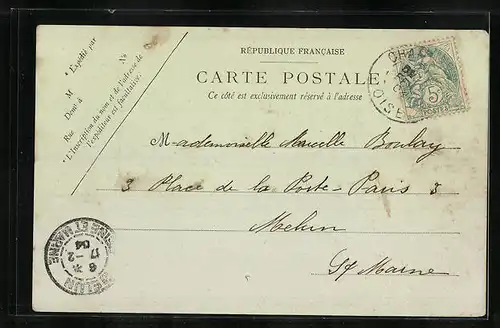 RÉPUBLIQUE FRANÇAISE
CARTE POSTALE
Ce côté est exclusivement réservé à l'adresse
* Expédié par
M
Demt à
Rue
N°
* L'Inscription du nom et de l'adresse de
l'expéditeur est facultative.
OISE
5
Mademoiselle Marcelle Boulay
3 Place de la Poste - Paris 3
Melun
St Marne
MELUN
6
17 - 2
04
SEINE ET MARNE